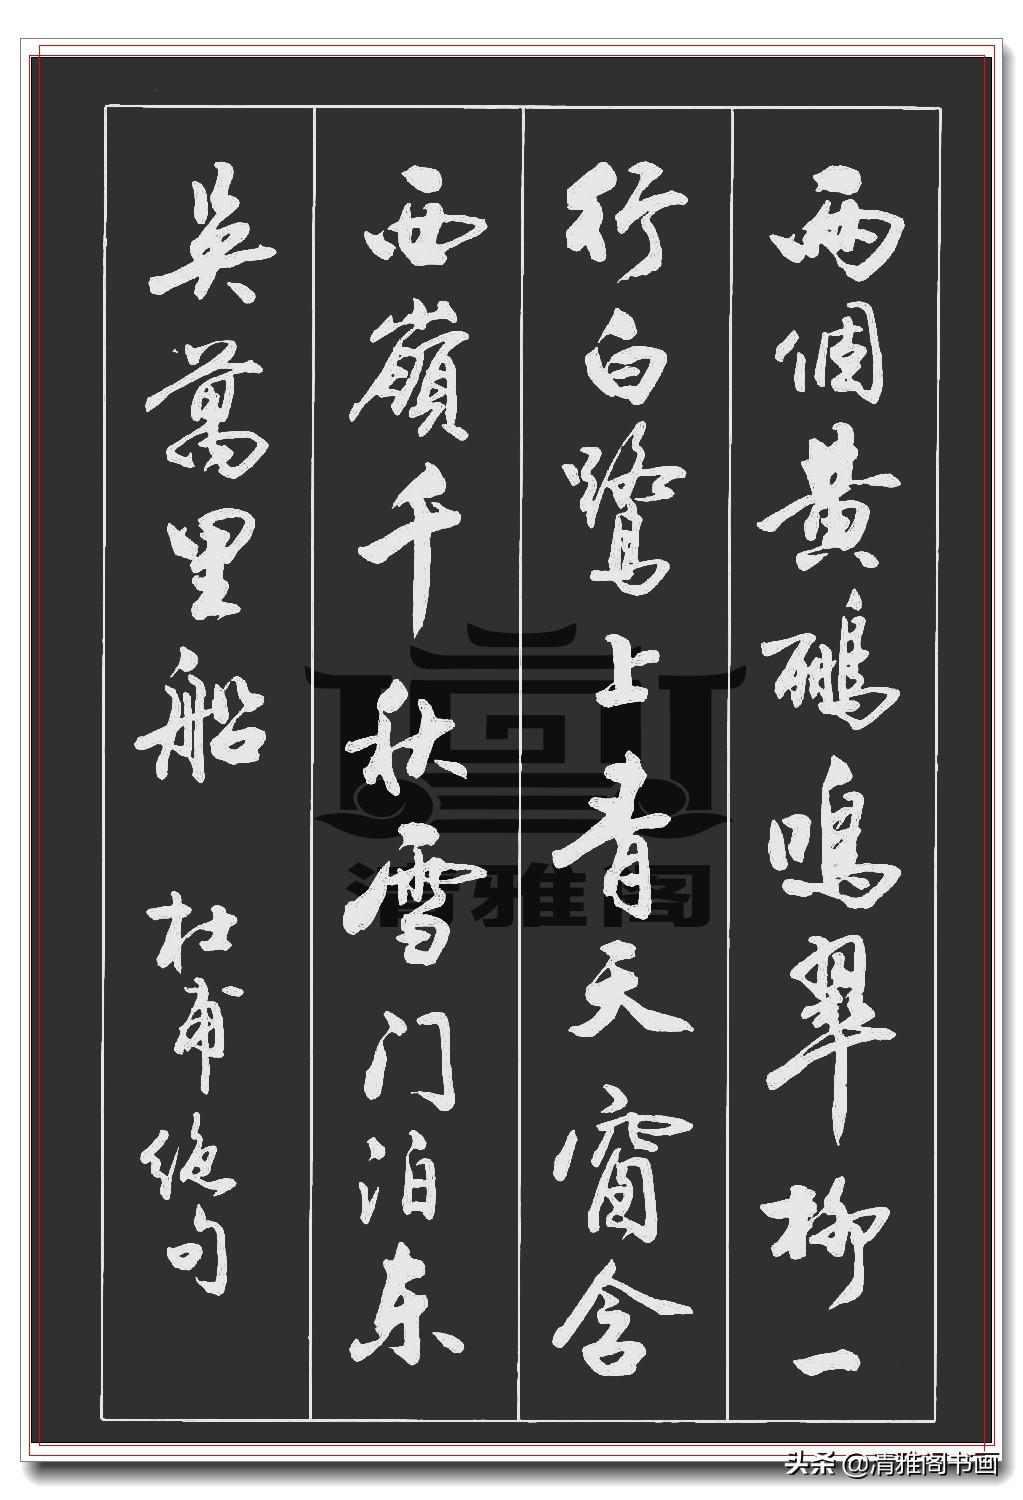 兩個黄鸝鳴翠柳一
行白鷺上青天窗含
西嶺千秋雪门泊东
吳萬里船 杜甫绝句
清雅阁
头条 @清雅阁书画